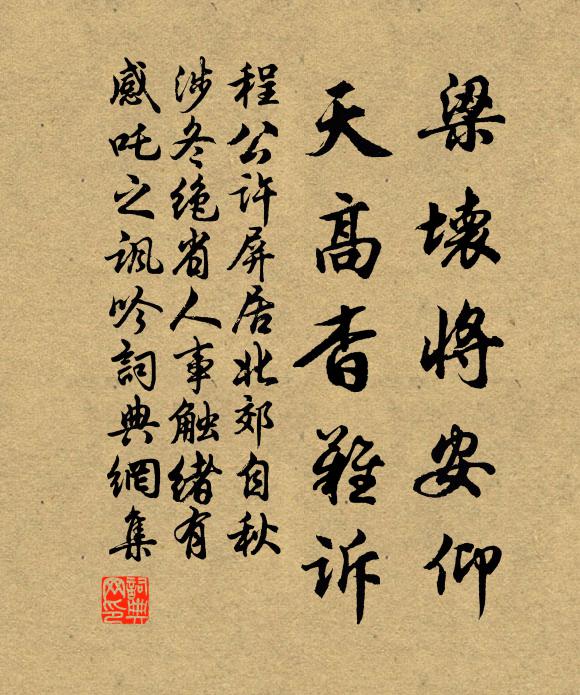 梁壞將安仰
天高杳難訴
程公许屏居北郊自秋
涉冬绝省人事触绪有
感吒之讽吟詞典網集
詞典网印